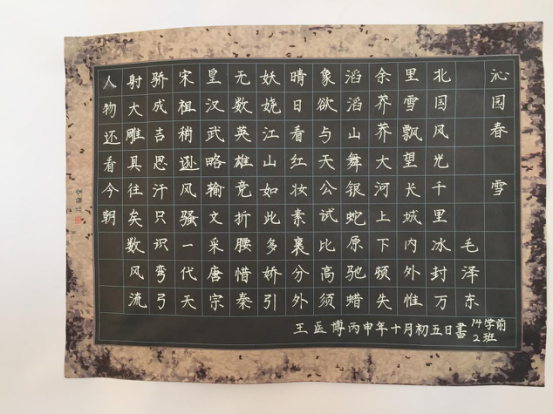 沁园春 雪
毛泽东
北国风光千里冰封万
里雪飘望长城内外惟
余莽莽大河上下顿失
滔滔山舞银蛇原驰蜡
象欲与天公试比高须
晴日看红妆素裹分外
妖娆江山如此多娇引
无数英雄竞折腰惜秦
皇汉武略输文采唐宗
宋祖稍逊风骚一代天
骄成吉思汗只识弯弓
射大雕具往矣数风流
人物还看今朝
王 博丙申年十月初五日書 学前2班